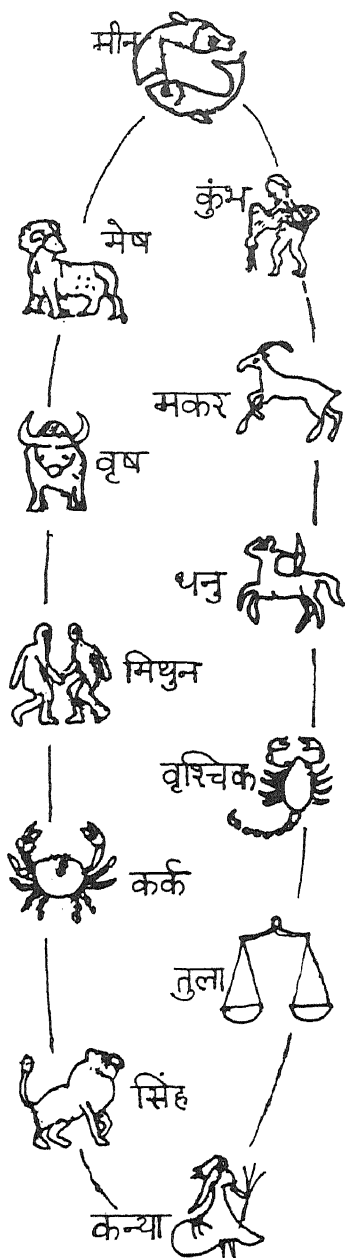 मीन
कुंभ
मेष
मकर
वृष
धनु
मिथुन
वृश्चिक
कर्क
तुला
सिंह
कन्या